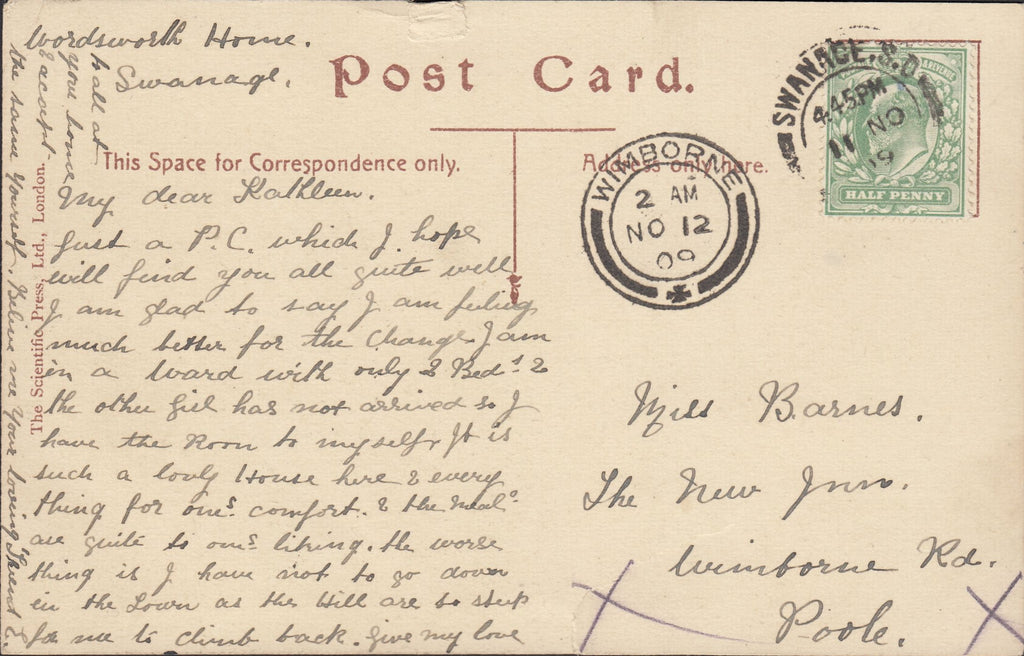 Wordsworth Home.
Swanage.
Post Card.
This Space for Correspondence only.
Address only here.
The Scientific Press, Ltd., London.
My dear Kathleen.
Just a P.C. which I hope
will find you all quite well
I am glad to say I am feeling
much better for the Change I am
in a Ward with only 2 Beds &
the other Girl has not arrived so I
have the Room to myself, It is
such a lovly House here & every
thing for ones comfort. & the meals
are quite to ones liking. the worse
thing is I have not to go down
in the Town as the Hill are to steep
for me to climb back. Give my love
to all at
your home
& accept
the same yourself. Believe me Your loving Friend E.
SWANAGE. S.O.
4.45PM
11 NO
09
WIMBORNE
2 AM
NO 12
09
HALF PENNY
Miss Barnes.
The New Inn.
Wimborne Rd.
Poole.